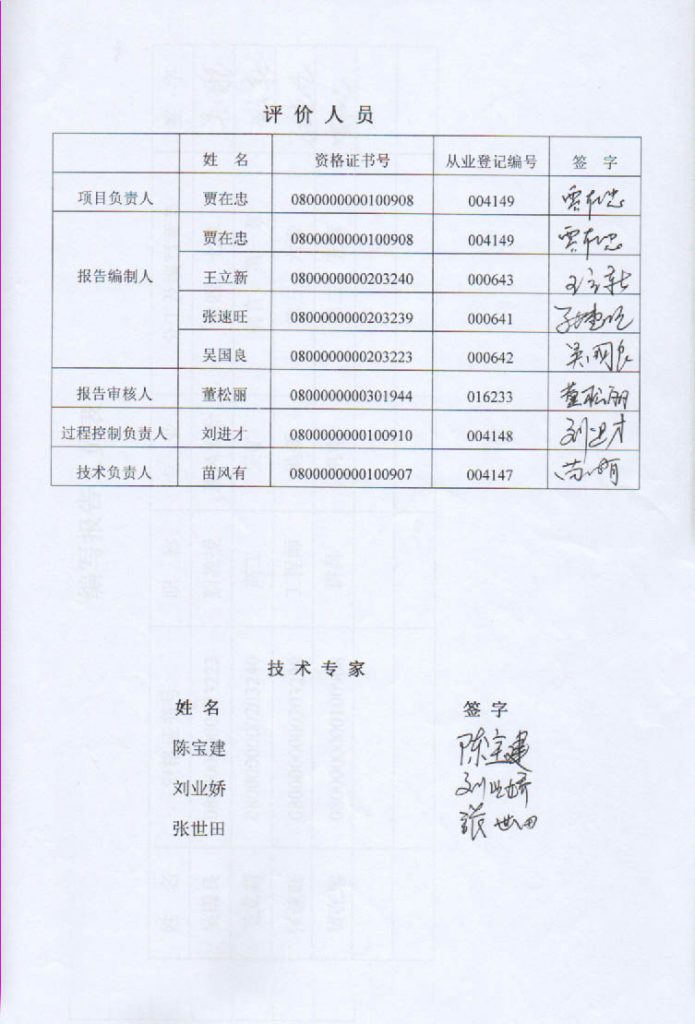 评价人员
姓 名 资格证书号 从业登记编号 签 字
项目负责人 贾在忠 0800000000100908 004149 贾在忠
报告编制人 贾在忠 0800000000100908 004149 贾在忠
王立新 0800000000203240 000643 王立新
张速旺 0800000000203239 000641 张速旺
吴国良 0800000000203223 000642 吴国良
报告审核人 董松丽 0800000000301944 016233 董松丽
过程控制负责人 刘进才 0800000000100910 004148 刘进才
技术负责人 苗风有 0800000000100907 004147
技术专家
姓 名 签 字
陈宝建 陈宝建
刘业娇 刘业娇
张世田 张世田